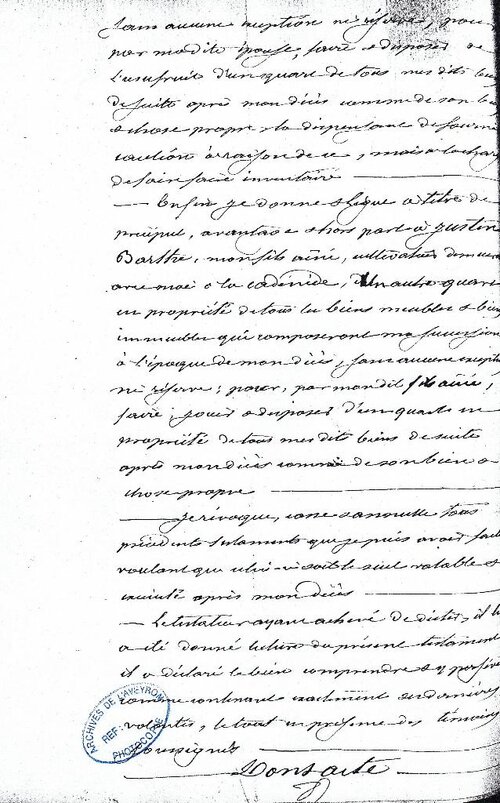 sans aucune exception ni réserve, pour
par madite épouse, jouir & disposer de
l'usufruit d'un quart de tous mes dits biens
de suite après mon décès comme de son bien
& chose propre & la dispensant de fournir
caution à raison de ce, mais à la charge
de faire faire inventaire
Enfin je donne & lègue à titre de
préciput, avantage & hors part à Justin
Barthe, mon fils aîné, cultivateur demeurant
avec moi à la, Un autre quart
en propriété de tous les biens meubles & biens
immeubles qui composeront ma succession
à l'époque de mon décès, sans aucune exception
ni réserve; pour, par mon dit fils aîné,
faire, jouir & disposer d'un quart en
propriété de tous mes dits biens de suite
après mon décès comme de son bien &
chose propre
Je révoque, casse & annulle tous
précédents testaments que je puis avoir fait
voulant que celui-ci soit le seul valable &
exécuté après mon décès
Le testateur ayant achevé de dicter, il lui
a été donné lecture du présent testament
il a déclaré le bien comprendre & y persévérer
comme contenant exactement ses dernières
volontés, le tout en présence des témoins
soussignés
Dont acte
ARCHIVES DE L'AVEYRON
REF:
PHOTOCOPIE